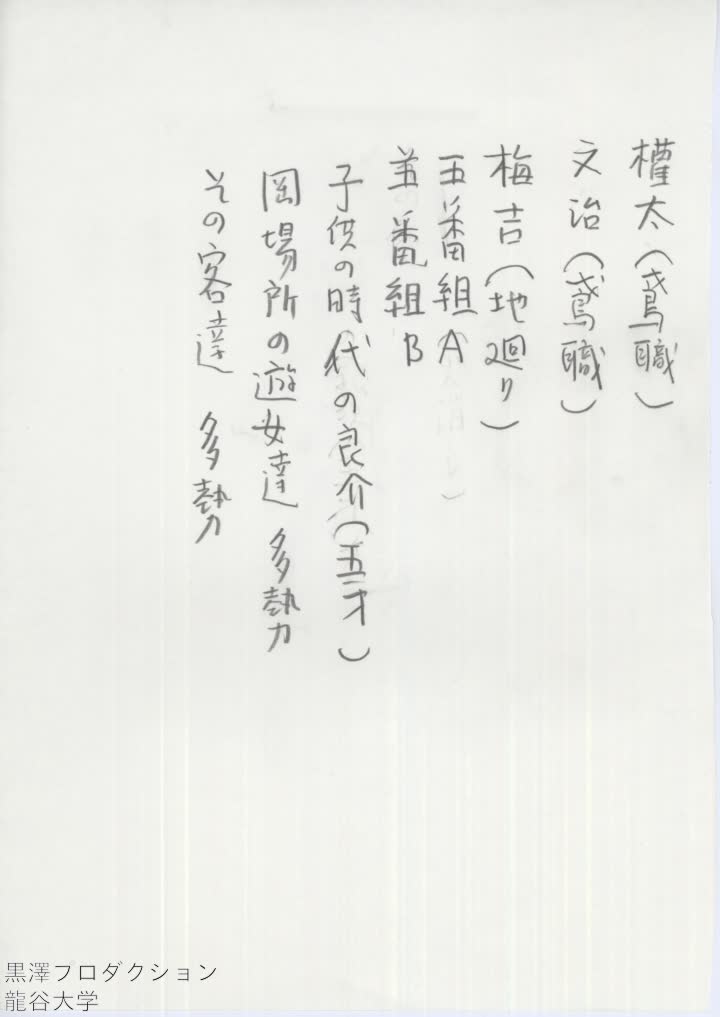 權太(鳶職)
文治(鳶職)
梅吉(地廻り)
五番組A
五番組B
子供の時代の良介(五才)
岡場所の遊女達 多勢
その客達 多勢
黒澤プロダクション
龍谷大学